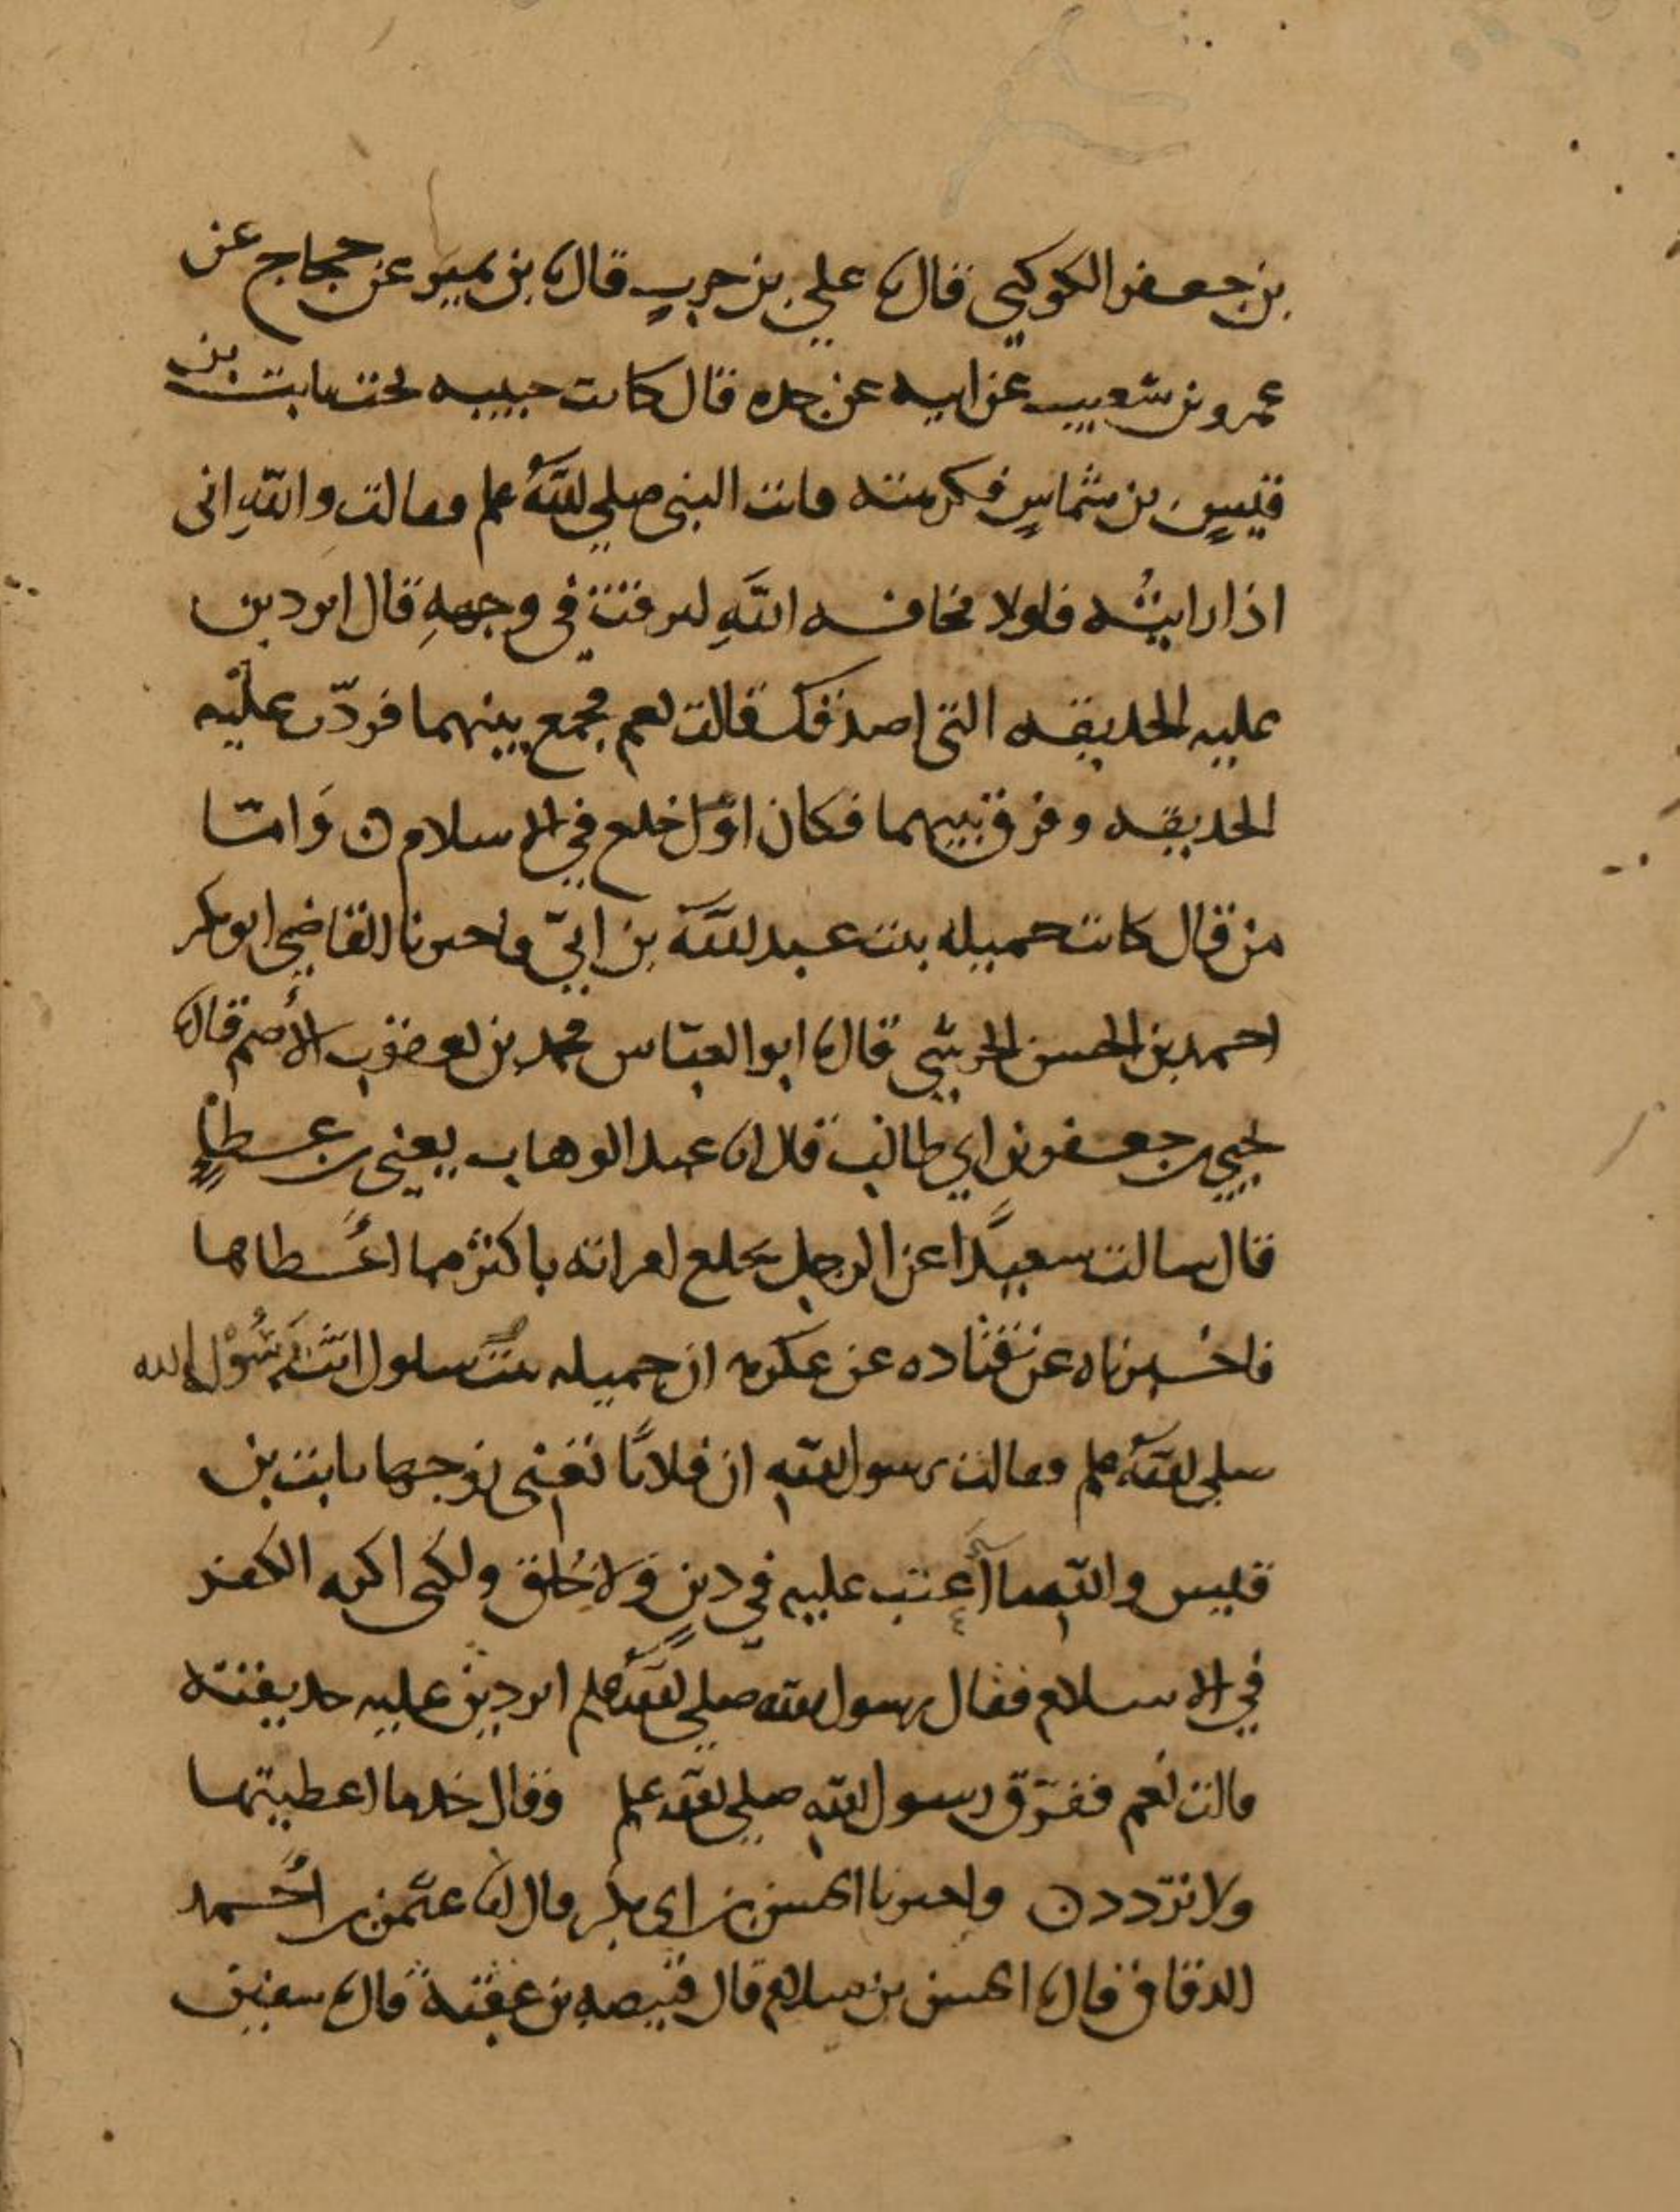 بن جعفر الكوكبي قال نا علي بن حرب قال نا بن نمير عن حجاج عن
عمرو بن شعيب عن ابيه عن جده قال كانت حبيبه تحت ثابت بن
قيس بن شماس فكرهته فاتت النبي صلى الله علم فقالت والله اني
اذا رايته فلولا مخافه الله لبزقت في وجهه قال اتردين
عليه الحديقه التي اصدقك قالت نعم فجمع بينهما فردّت عليه
الحديقه وفرق بينهما فكان اوّل خلع في الاسلام ن وَامّا
من قال كانت جميله بنت عبد الله بن ابيّ فاخبرنا القاضي ابو بكر
احمد بن الحسن الحرشي قال نا ابو العبّاس محمد بن يعقوب الأصم قال نا
يحيى بن جعفر بن ابي طالب قال انا عبد الوهاب يعني بن عطاءٍ
قال سالت سعيدًا عن الرجل يخلع امراته باكثر مما اعطاها
فاخبرناه عن قتاده عن عكرمه ان جميله بنت سلول اتت رَسُوْل الله
صلى الله علم فقالت يرسول الله ان فلانًا تعني زوجها ثابت بن
قيس والله ما أعتب عليه في دينٍ وَلا خُلق ولكني اكره الكفر
في الاسلام فقال رسول الله صلى الله علم اتردين عليه حديقته
قالت نعم ففرّق رسول الله صلى الله علم وقال خذ ما اعطيتها
ولا تزددن واخبرنا الحسن بن ابي بكر قال انا عثمن بن احمد
الدقاق قال نا الحسن بن سلام قال قبيصه بن عقبة قال نا سفين